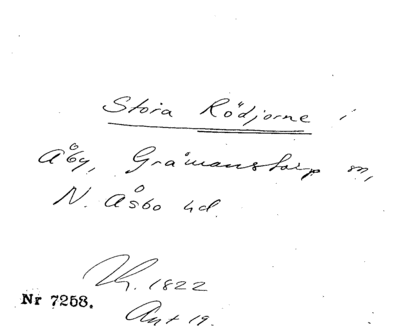 Stora Rödjorne i
Åby, Gråmanstorp sn,
N. Åsbo hd.
Th. 1822
Nr 7258.
Ant 19.